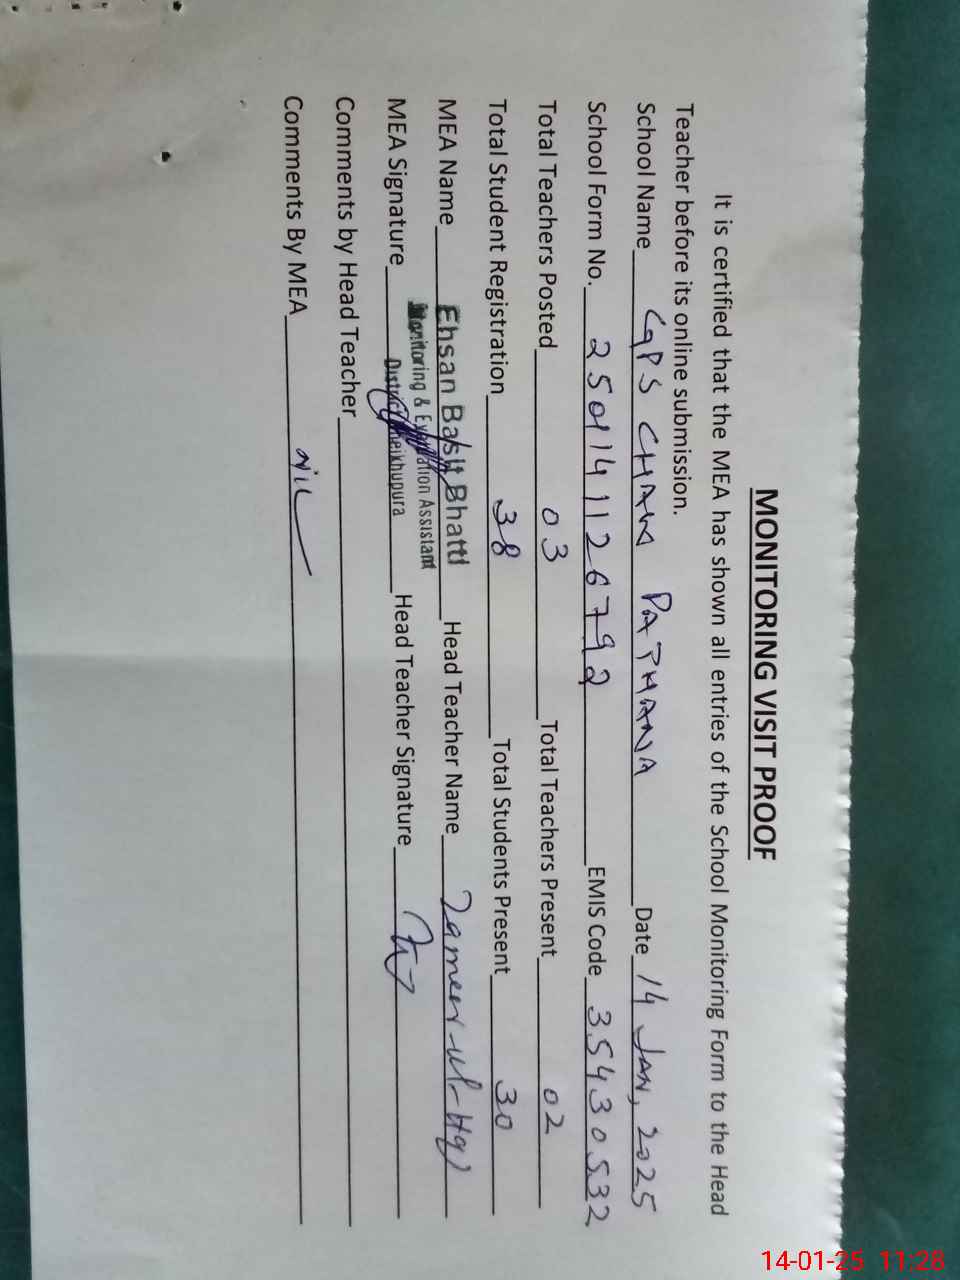 MONITORING VISIT PROOF
It is certified that the MEA has shown all entries of the School Monitoring Form to the Head
Teacher before its online submission.
School Name GPS CHAK PATHANA Date 14 JAN, 2025
School Form No. 2501141126792 EMIS Code 35430532
Total Teachers Posted 03 Total Teachers Present 02
Total Student Registration 38 Total Students Present 30
MEA Name Ehsan Basit Bhatti Head Teacher Name Zameer-ul-Haq
Monitoring & Evaluation Assistant
MEA Signature District Sheikhupura Head Teacher Signature
Comments by Head Teacher
Comments By MEA Nil
14-01-25 11:28